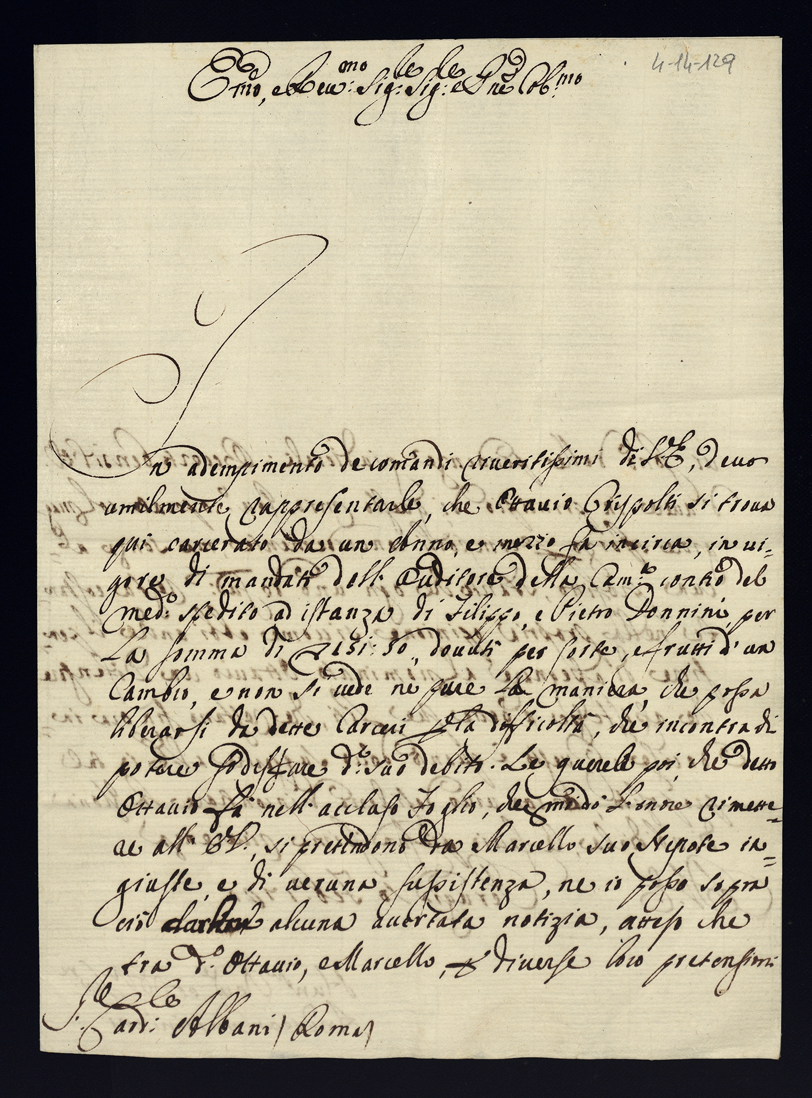 4-14-129
E.mo, e Reu.mo Sig.re Sig.re e P.ne Col.mo
In adempimento de comandi riueritissimi di V.E., deuo
umilmente rappresentarle, che Ottauio Crispolti si troua
qui carcerato da un Anno, e mezzo fa incirca, in ui-
gore di mandati dell' Auditore della Cam.a contro del
med.o spedito ad istanza di Filippo, e Pietro Donnini, per
La somma di 50, douuti per sorte, e frutti d'un
Cambio, e non si uede ne pure La maniera, che possa
liberarsi da dette Carceri p la difficoltà, che incontra di
potere sodisfare d.o suo debito. Le querele poi, che detto
Ottauio fà nell' accluso Foglio, che mi mandò rimette=
re all' E.V., si pretendono da Marcello suo Nepote in=
giuste, e di ueruna sussistenza, ne io posso sopra
ciò alcuna auertata notizia, atteso che
tra d.o Ottauio, e Marcello, diuerse loro pretensioni
S.re Card.le Albani / Roma /